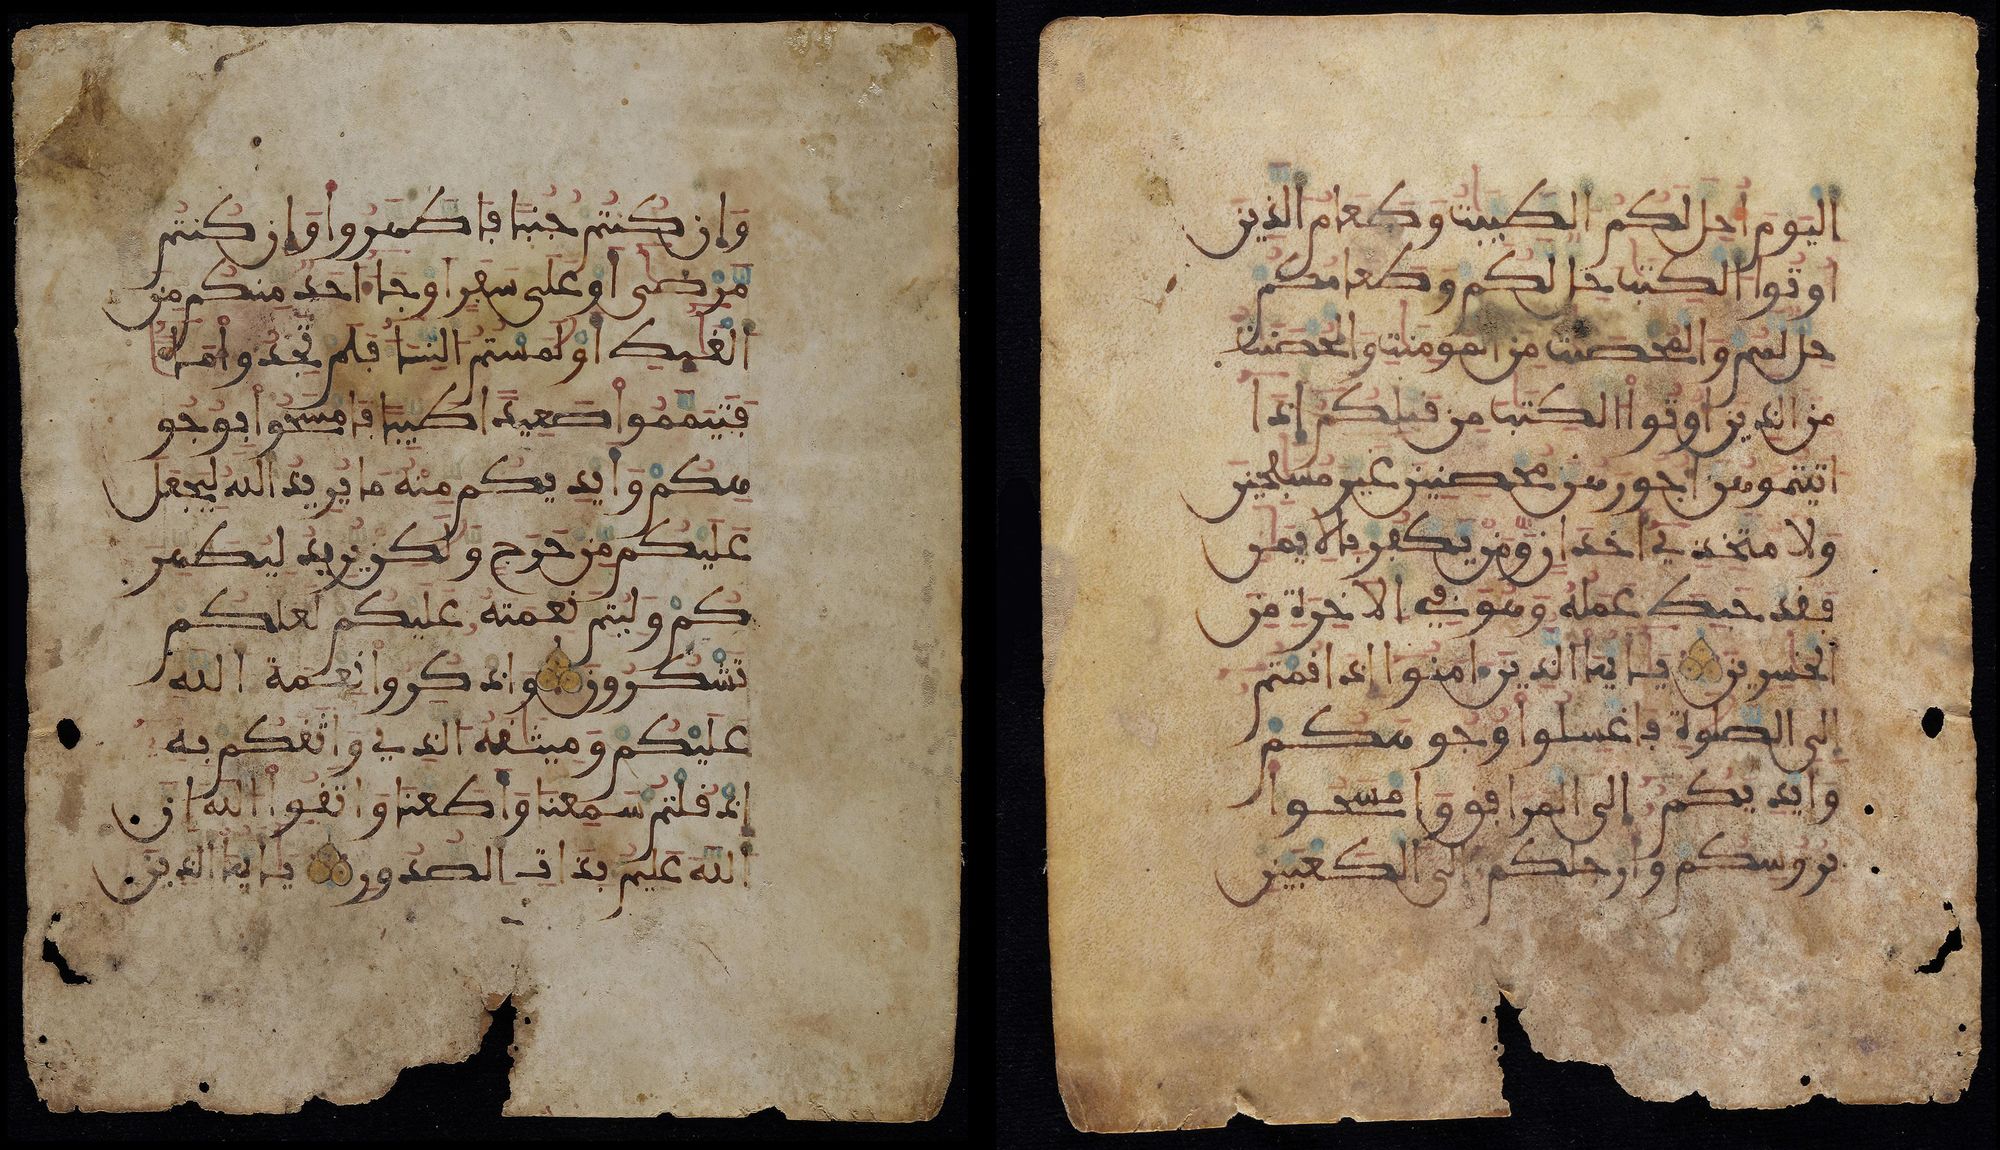 اليوم أحل لكم الطيبت وطعام الذين
اوتوا الكتب حل لكم وطعامكم
حل لهم والمحصنت من المومنت والمحصنت
من الذين اوتوا الكتب من قبلكم إذا
اتيتموهن اجورهن محصنين غير مسفحين
ولا متخذي اخدان ومن يكفر بالايمن
فقد حبط عمله وهو في الاخرة من
الخسرين يايها الذين امنوا إذا قمتم
إلى الصلوة فاغسلوا وجوهكم
وايديكم إلى المرافق وامسحوا
بروسكم وارجلكم إلى الكعبين
وإن كنتم جنبا فاطهروا وإن كنتم
مرضى أو على سفر او جا احد منكم من
الغايط أو لمستم النسا فلم تجدوا ما
فتيمموا صعيدا طيبا فامسحوا بوجو
هكم وايديكم منه ما يريد الله ليجعل
عليكم من حرج ولكن يريد ليطهر
كم وليتم نعمته عليكم لعلكم
تشكرون واذكروا نعمة الله
عليكم وميثقه الذي واثقكم به
إذ قلتم سمعنا وأطعنا واتقوا الله إن
الله عليم بذات الصدور يايها الذين